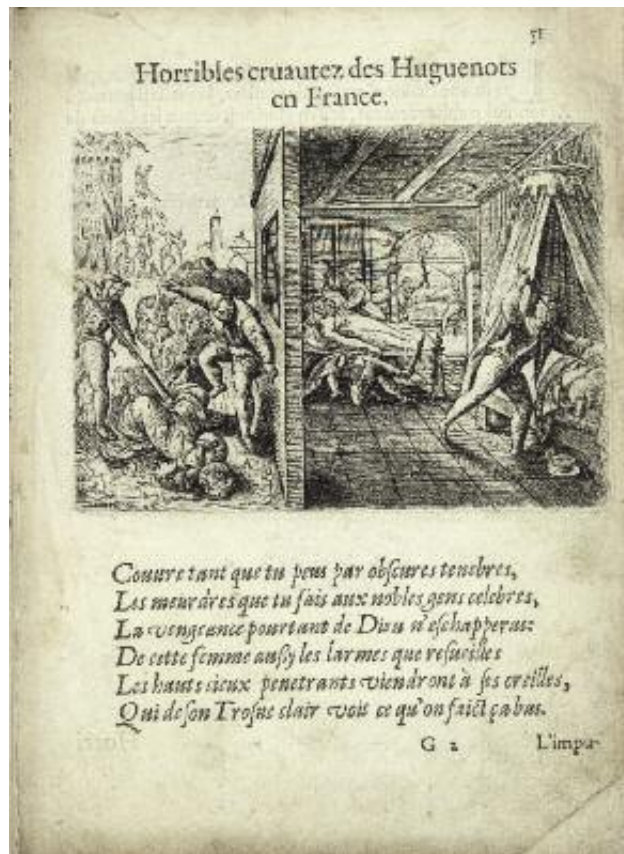 51
Horribles cruautez des Huguenots
en France.
Couure tant que tu peus par obscures tenebres,
Les meurdres que tu fais aux nobles gens celebres,
La vengeance pourtant de Dieu n'eschapperas:
De cette femme aussy les larmes que
Les hauts cieux penetrants viendront à ses oreilles,
Qui de son Trosne clair voit ce qu'on faict ça bas.
G 2
L'impu-